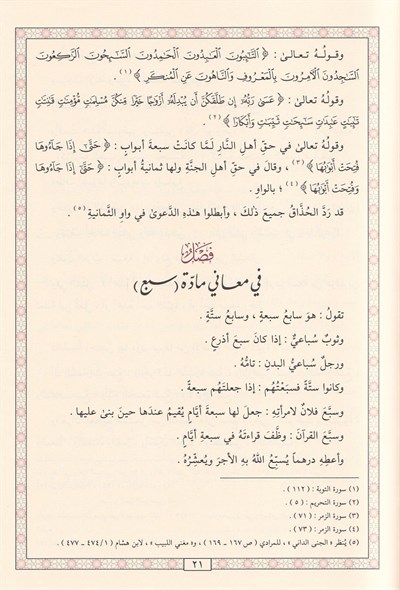 وقولُهُ تعالىٰ : ﴿ التَّائِبُونَ الْعَابِدُونَ الْحَامِدُونَ السَّائِحُونَ الرَّاكِعُونَ
السَّاجِدُونَ الْآمِرُونَ بِالْمَعْرُوفِ وَالنَّاهُونَ عَنِ الْمُنكَرِ ﴾ (١) .
وقولُهُ تعالىٰ : ﴿ عَسَىٰ رَبُّهُ إِن طَلَّقَكُنَّ أَن يُبْدِلَهُ أَزْوَاجًا خَيْرًا مِّنكُنَّ مُسْلِمَاتٍ مُّؤْمِنَاتٍ قَانِتَاتٍ
تَائِبَاتٍ عَابِدَاتٍ سَائِحَاتٍ ثَيِّبَاتٍ وَأَبْكَارًا ﴾ (٢) .
وقولُهُ تعالىٰ في حقِّ أهلِ النَّارِ لَمَّا كانَتْ سبعةَ أبوابٍ : ﴿ حَتَّىٰ إِذَا جَاءُوهَا
فُتِحَتْ أَبْوَابُهَا ﴾ (٣) ، وقالَ في حقِّ أهلِ الجنَّةِ ولها ثمانيةُ أبوابٍ : ﴿ حَتَّىٰ إِذَا جَاءُوهَا
وَفُتِحَتْ أَبْوَابُهَا ﴾ (٤) ؛ بالواوِ .
قد رَدَّ الحُذَّاقُ جميعَ ذلكَ ، وأبطلوا هـٰذهِ الدَّعوىٰ في واوِ الثَّمانيةِ (٥) .
فَصْلٌ
في معاني مادّة (سبع)
تقولُ : هوَ سابعُ سبعةٍ ، وسابعُ ستَّةٍ .
وثوبٌ سُباعيٌّ : إذا كانَ سبعَ أذرعٍ .
ورجلٌ سُباعيُّ البدنِ : تامُّهُ .
وكانوا ستَّةً فسبَعْتُهُم : إذا جعلتَهُم سبعةً .
وسبَّعَ فلانٌ لامرأتِهِ : جعلَ لها سبعةَ أيَّامٍ يُقيمُ عندَها حينَ بنىٰ عليها .
وسبَّعَ القرآنَ : وظَّفَ قراءتَهُ في سبعةِ أيَّامٍ .
وأعطِهِ درهماً يُسبِّعُ اللهُ بهِ الأجرَ ويُعشِّرُهُ .
(١) سورة التوبة : ( ١١٢ ) .
(٢) سورة التحريم : ( ٥ ) .
(٣) سورة الزمر : ( ٧١ ) .
(٤) سورة الزمر : ( ٧٣ ) .
(٥) يُنظر « الجنى الداني » ، للمرادي ( ص ١٦٧ ـ ١٦٩ ) ، و« مغني اللبيب » ، لابن هشام ( ١/ ٤٧٤ ـ ٤٧٧ ) .
٢١